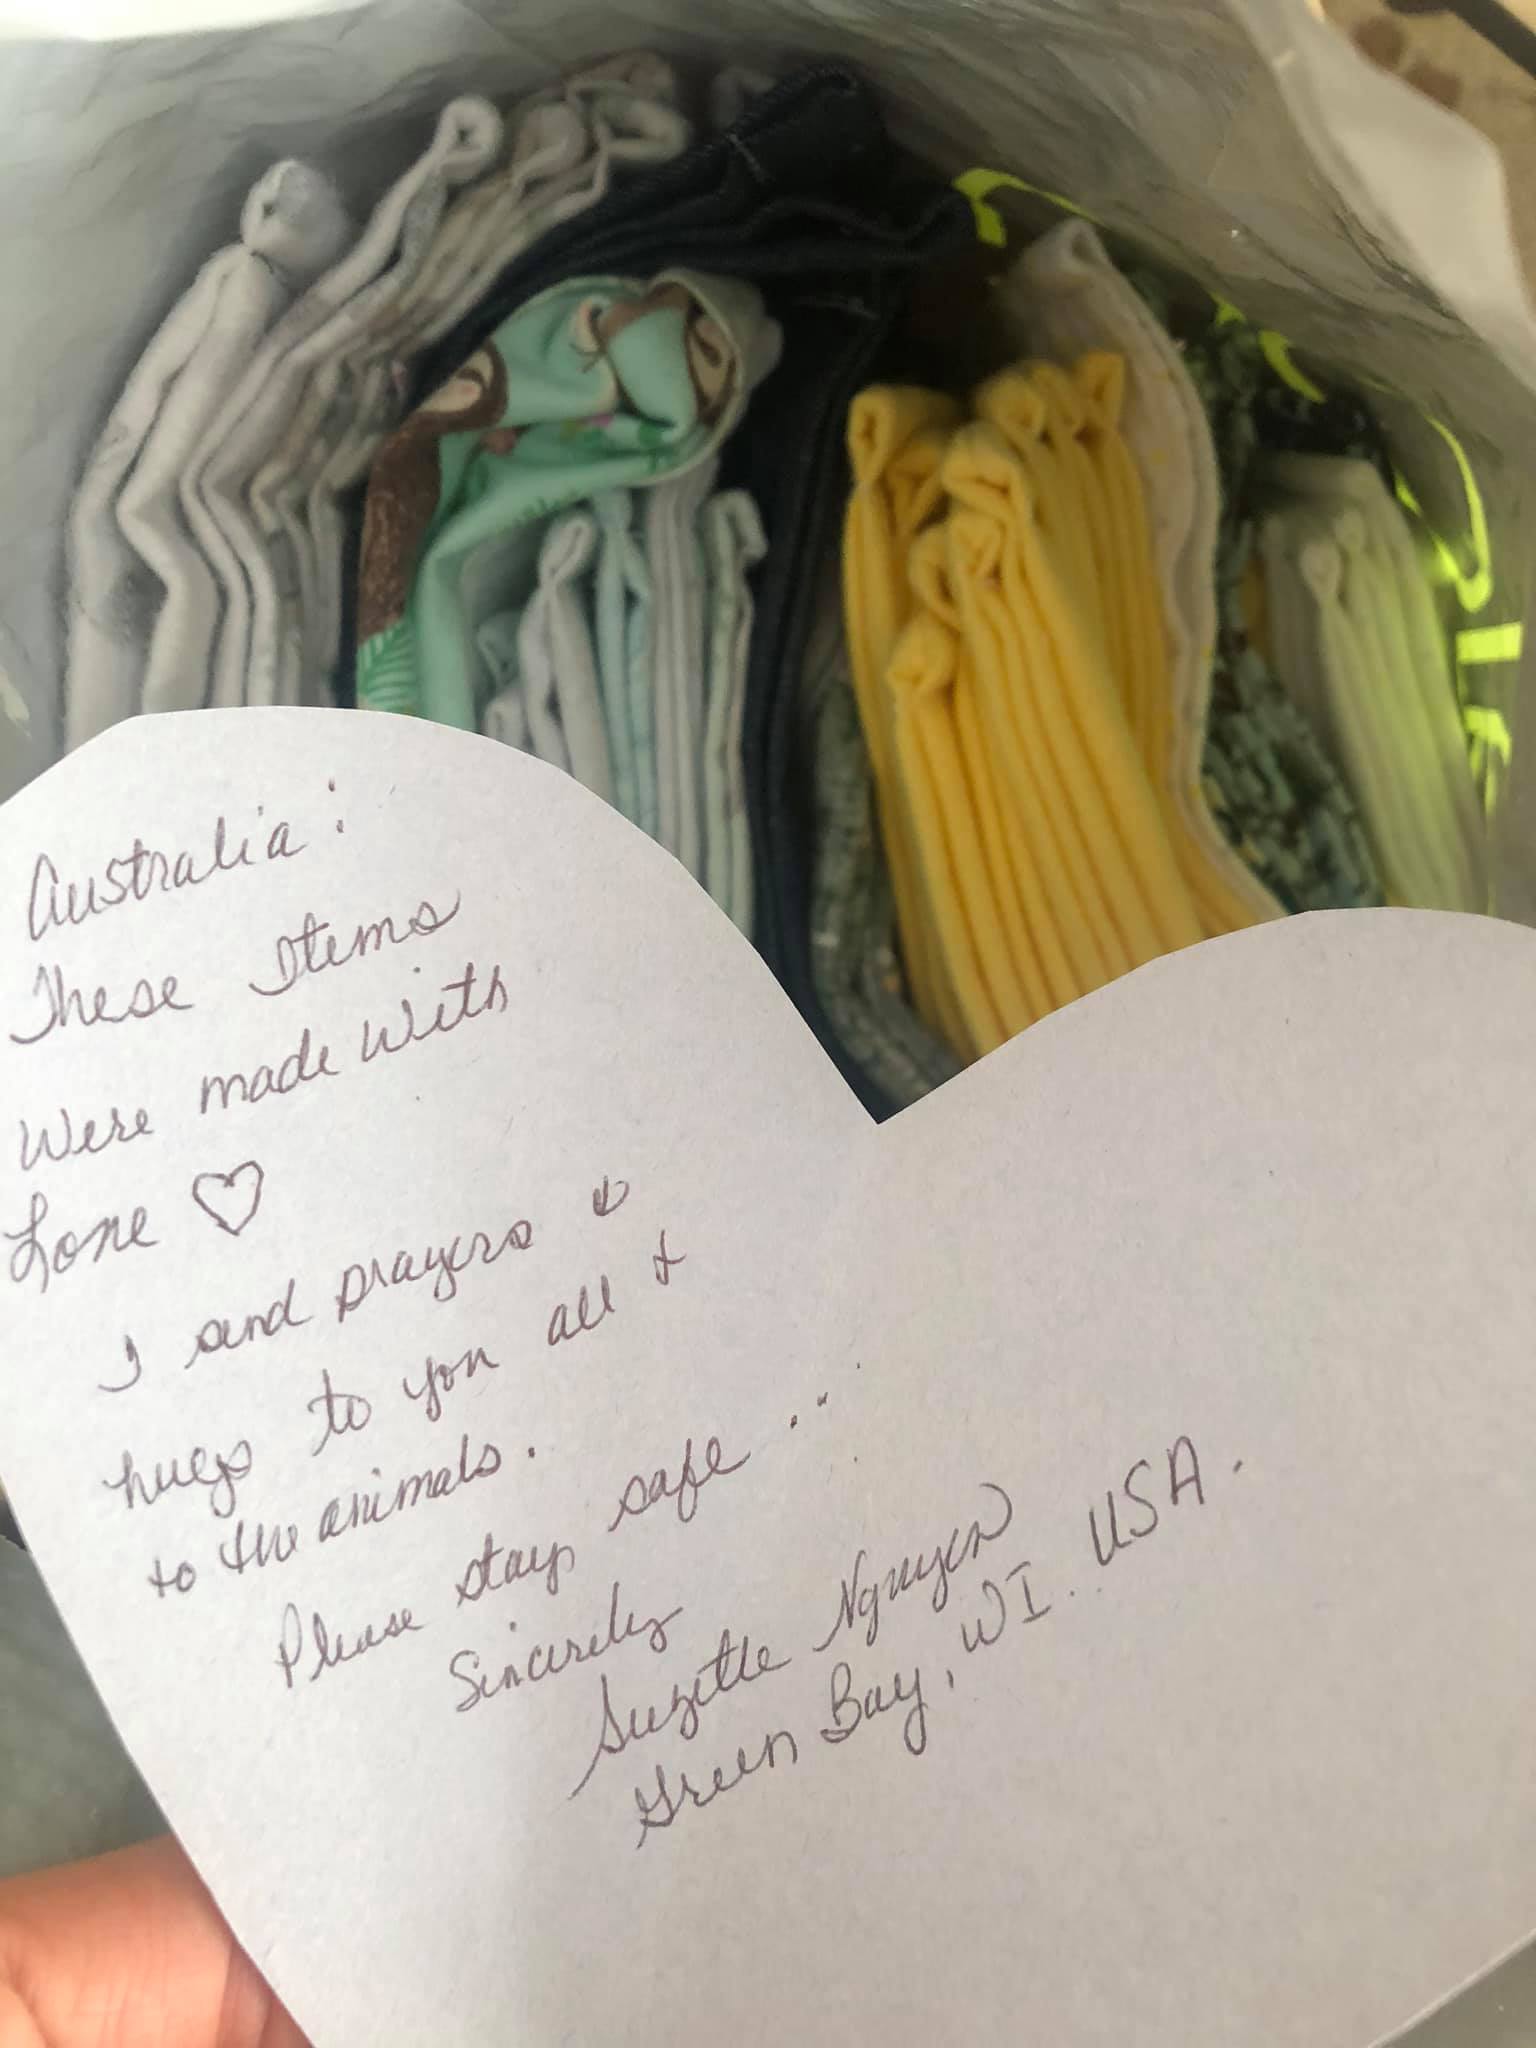 Australia:
These Items
Were made with
Love ♡
I send prayers &
hugs to you all &
to the animals.
Please stay safe ...
Sincerely
Suzette Nguyen
Green Bay, WI. USA.